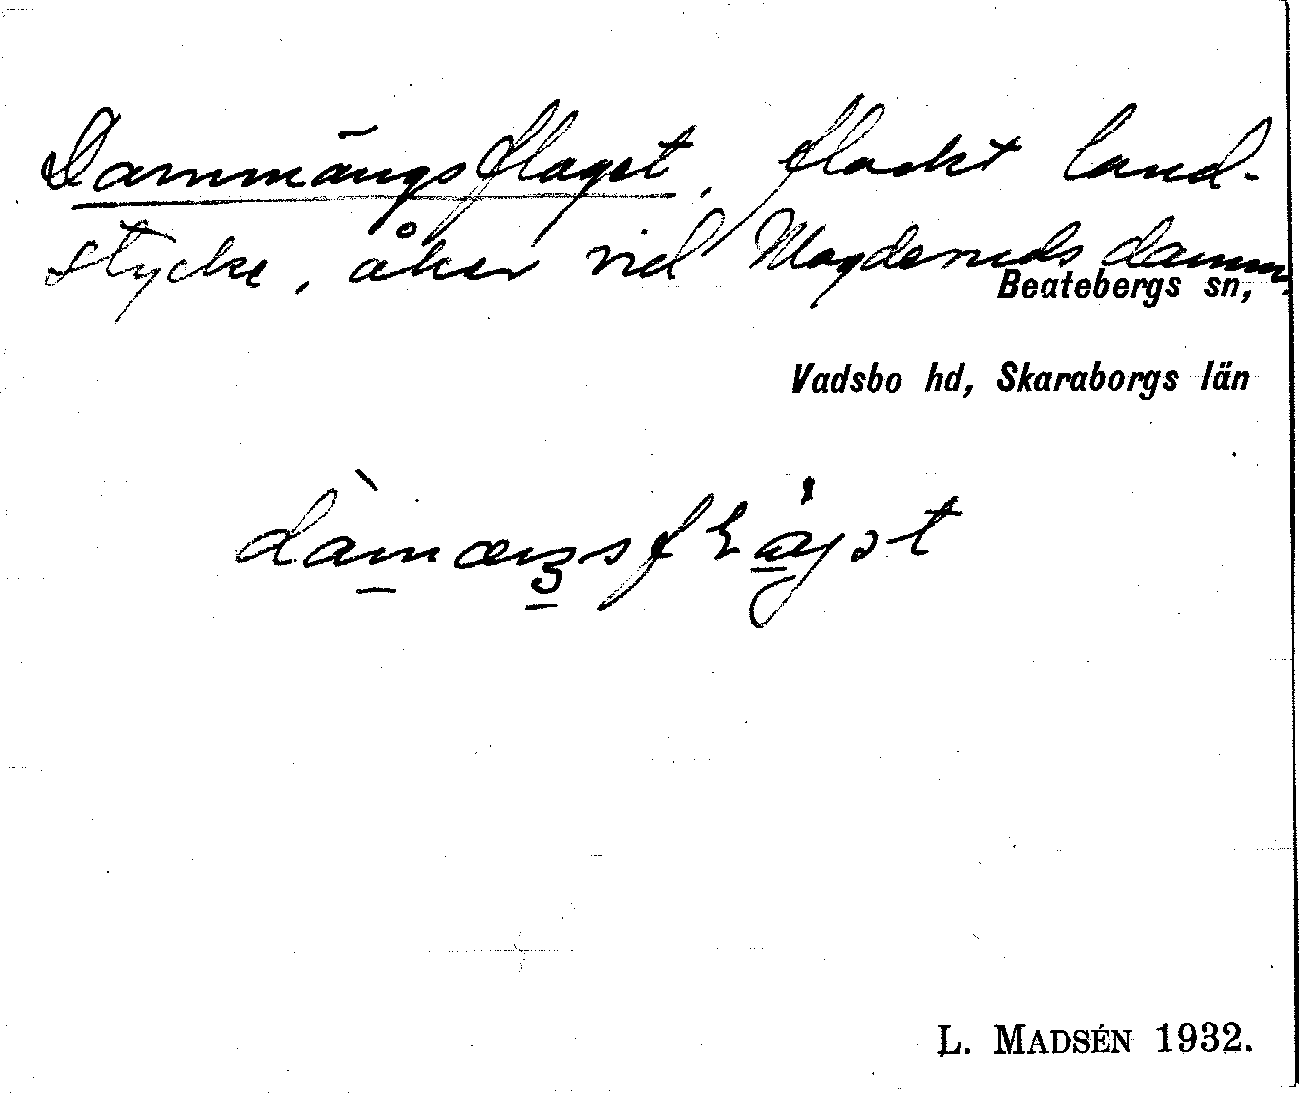 Dammängsflaget, flackt land-
stycke, åker vid Magdereds damm.
Beatebergs sn,
Vadsbo hd, Skaraborgs län
L. MADSÉN 1932.